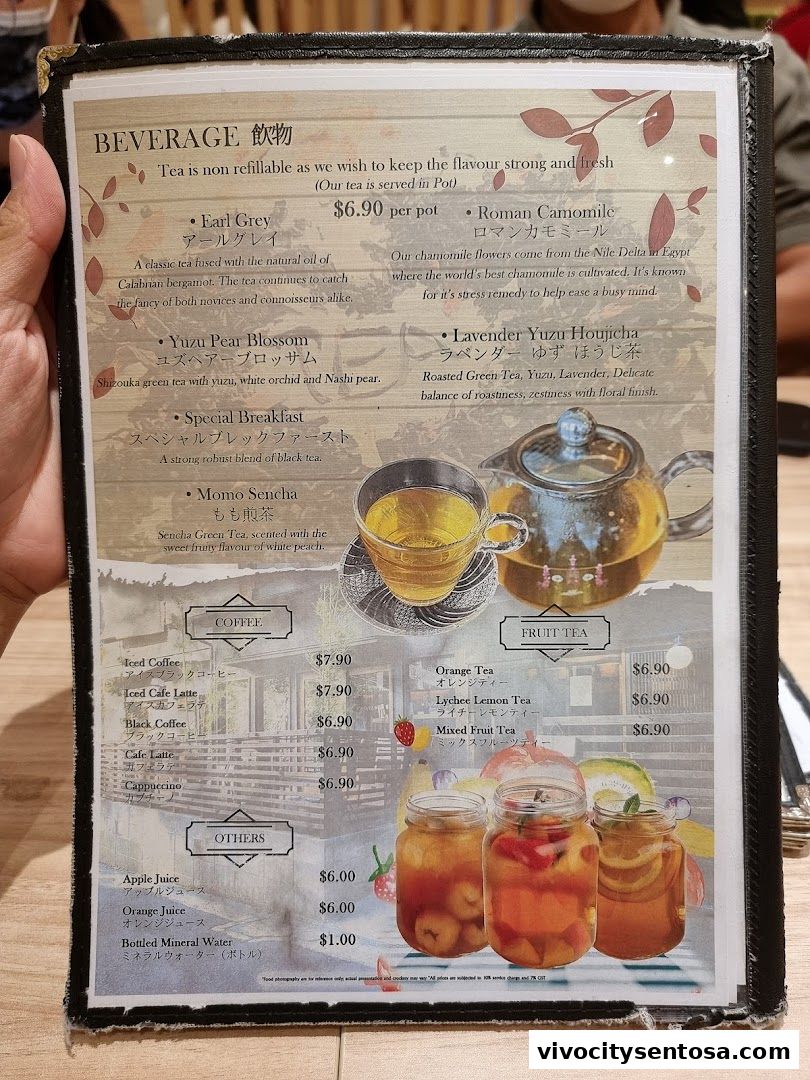 BEVERAGE 飲物
Tea is non refillable as we wish to keep the flavour strong and fresh
(Our tea is served in Pot)
$6.90 per pot
• Earl Grey
アールグレイ
A classic tea fused with the natural oil of
Calabrian bergamot. The tea continues to catch
the fancy of both novices and connoisseurs alike.
• Roman Camomile
ロマンカモミール
Our chamomile flowers come from the Nile Delta in Egypt
where the world's best chamomile is cultivated. It's known
for it's stress remedy to help ease a busy mind.
• Yuzu Pear Blossom
ユズペアーブロッサム
Shizouka green tea with yuzu, white orchid and Nashi pear.
• Lavender Yuzu Houjicha
ラベンダー ゆず ほうじ茶
Roasted Green Tea, Yuzu, Lavender, Delicate
balance of roastiness, zestiness with floral finish.
• Special Breakfast
スペシャルブレックファースト
A strong robust blend of black tea.
• Momo Sencha
もも煎茶
Sencha Green Tea, scented with the
sweet fruity flavour of white peach.
COFFEE
Iced Coffee $7.90
アイスブラックコーヒー
Iced Cafe Latte $7.90
アイスカフェラテ
Black Coffee $6.90
ブラックコーヒー
Cafe Latte $6.90
カフェラテ
Cappuccino $6.90
カプチーノ
FRUIT TEA
Orange Tea $6.90
オレンジティー
Lychee Lemon Tea $6.90
ライチーレモンティー
Mixed Fruit Tea $6.90
ミックスフルーツティー
OTHERS
Apple Juice $6.00
アップルジュース
Orange Juice $6.00
オレンジジュース
Bottled Mineral Water $1.00
ミネラルウォーター（ボトル）
*Food photography are for reference only; actual presentation and crockery may vary *All prices are subjected to 10% service charge and 7% GST
vivocitysentosa.com